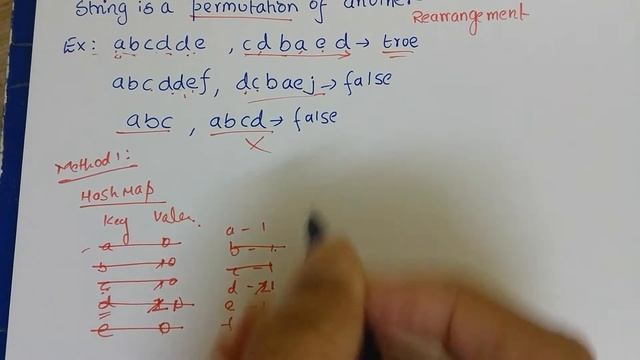 String is a permutation of another
Rearrangement
Ex: abcdde , cdbaed → true
abcddef, dcbaej → false
abc , abcd → false
X
Method 1:
HashMap
Key Value
a 0 a - 1
b 10 b - 1
c 10 c - 1
d 210 d - 21
e 0 e - 1